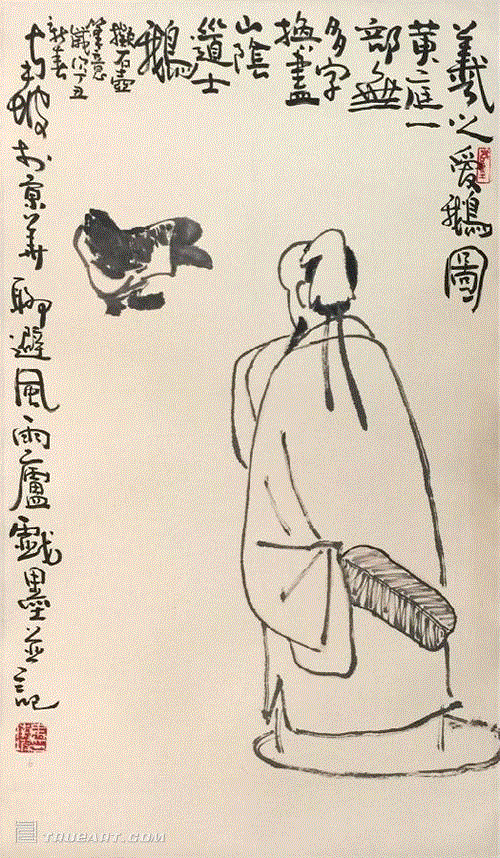 羲之愛鵝圖
黃庭一
部無
多字
換盡
山陰
道士
鵝
擬石壺
筆意
歲次丁丑
新春
坡於京華聊避風雨廬戲墨並記
TRUEART.COM